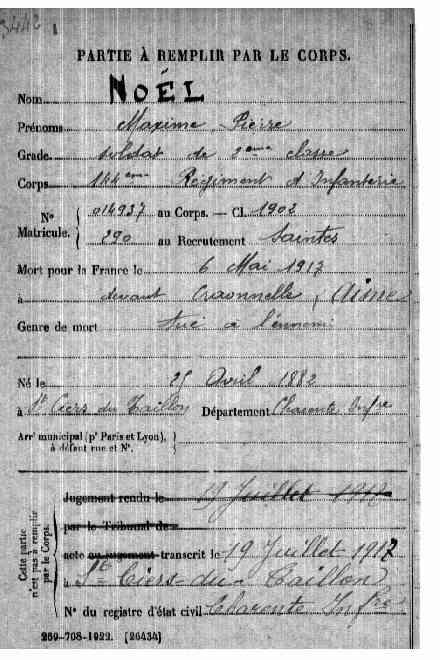 3442
PARTIE À REMPLIR PAR LE CORPS.
Nom NOËL
Prénoms Maxime Pierre
Grade soldat de 2ème classe
Corps 144eme Régiment d'Infanterie
N° Matricule. { 014937 au Corps. — Cl. 1902
290 au Recrutement Saintes
Mort pour la France le 6 Mai 1917
à devant Craonnelle, Aisne
Genre de mort tué à l'ennemi
Né le 25 Avril 1882
à St Ciers du Taillon Département Charente Infre
Arrt municipal (pr Paris et Lyon), à défaut rue et N°. }
Cette partie n'est pas à remplir par le Corps. {
Jugement rendu le 19 Juillet 1917
par le Tribunal de
acte au jugement transcrit le 19 Juillet 1917
à St Ciers-du-Taillon
N° du registre d'état civil Charente Infre
269-708-1922. [26434]